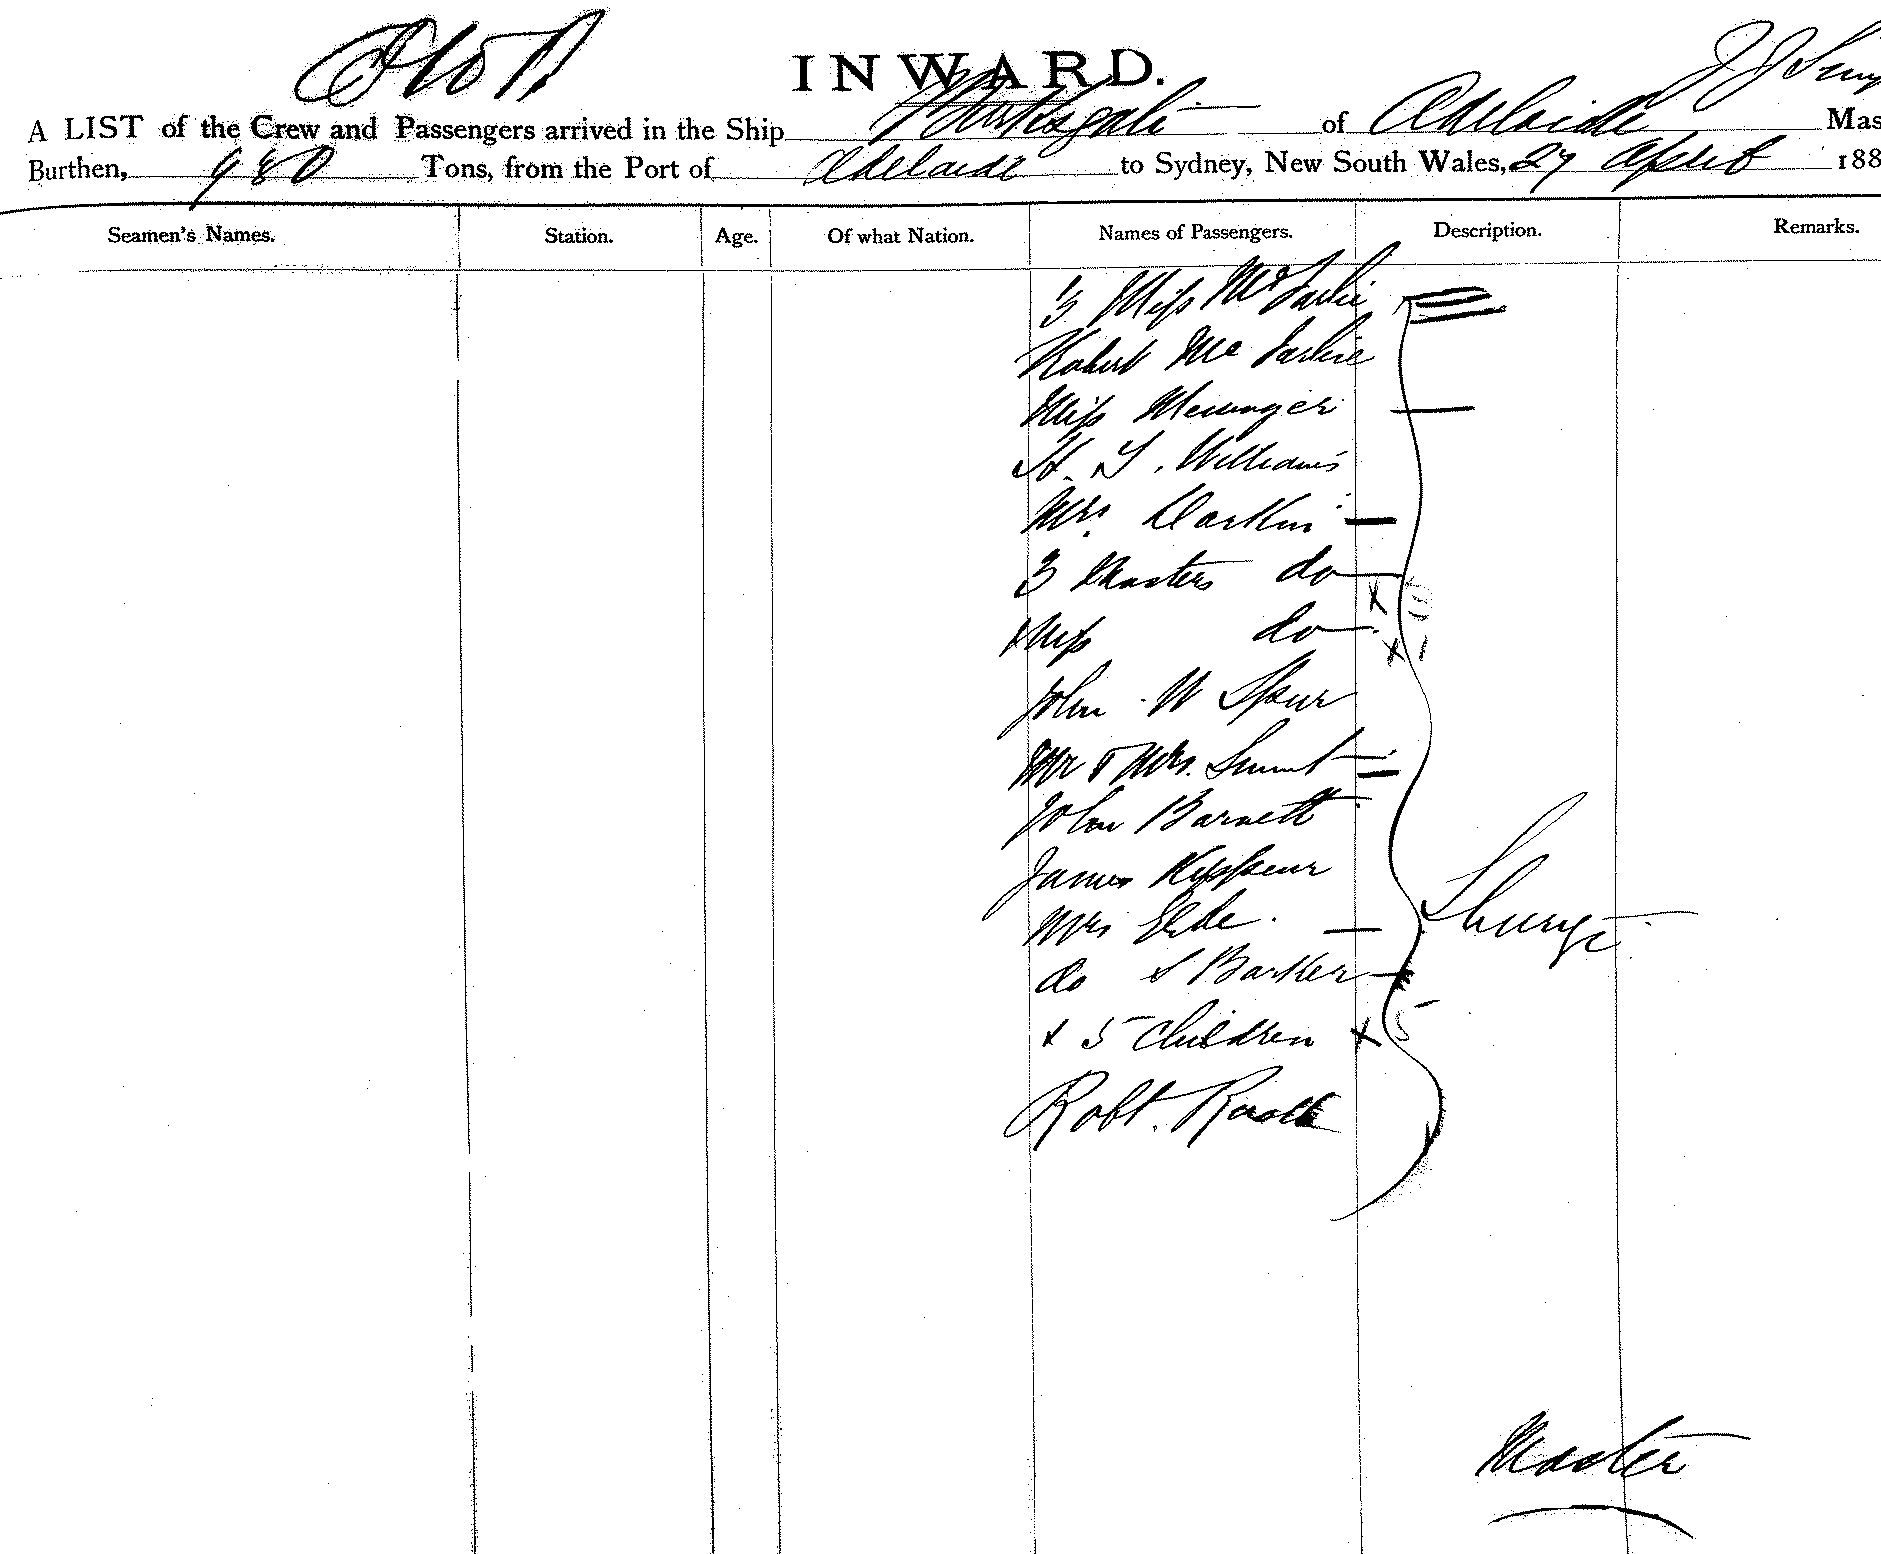 INWARD.
A LIST of the Crew and Passengers arrived in the Ship of Adelaide Mas
Burthen, 980 Tons, from the Port of Adelaide to Sydney, New South Wales, 27 April 188
Seamen's Names. Station. Age. Of what Nation. Names of Passengers. Description. Remarks.
3 Miss
Robert Mc
Miss Messenger
H. T. Williams
Mrs. Darkin
3 Masters do
Miss do
John W Spur
Mr & Mrs.
John Barnett
James
Mrs
do S Barker
+ 5 Children x 5
Robt.
Master